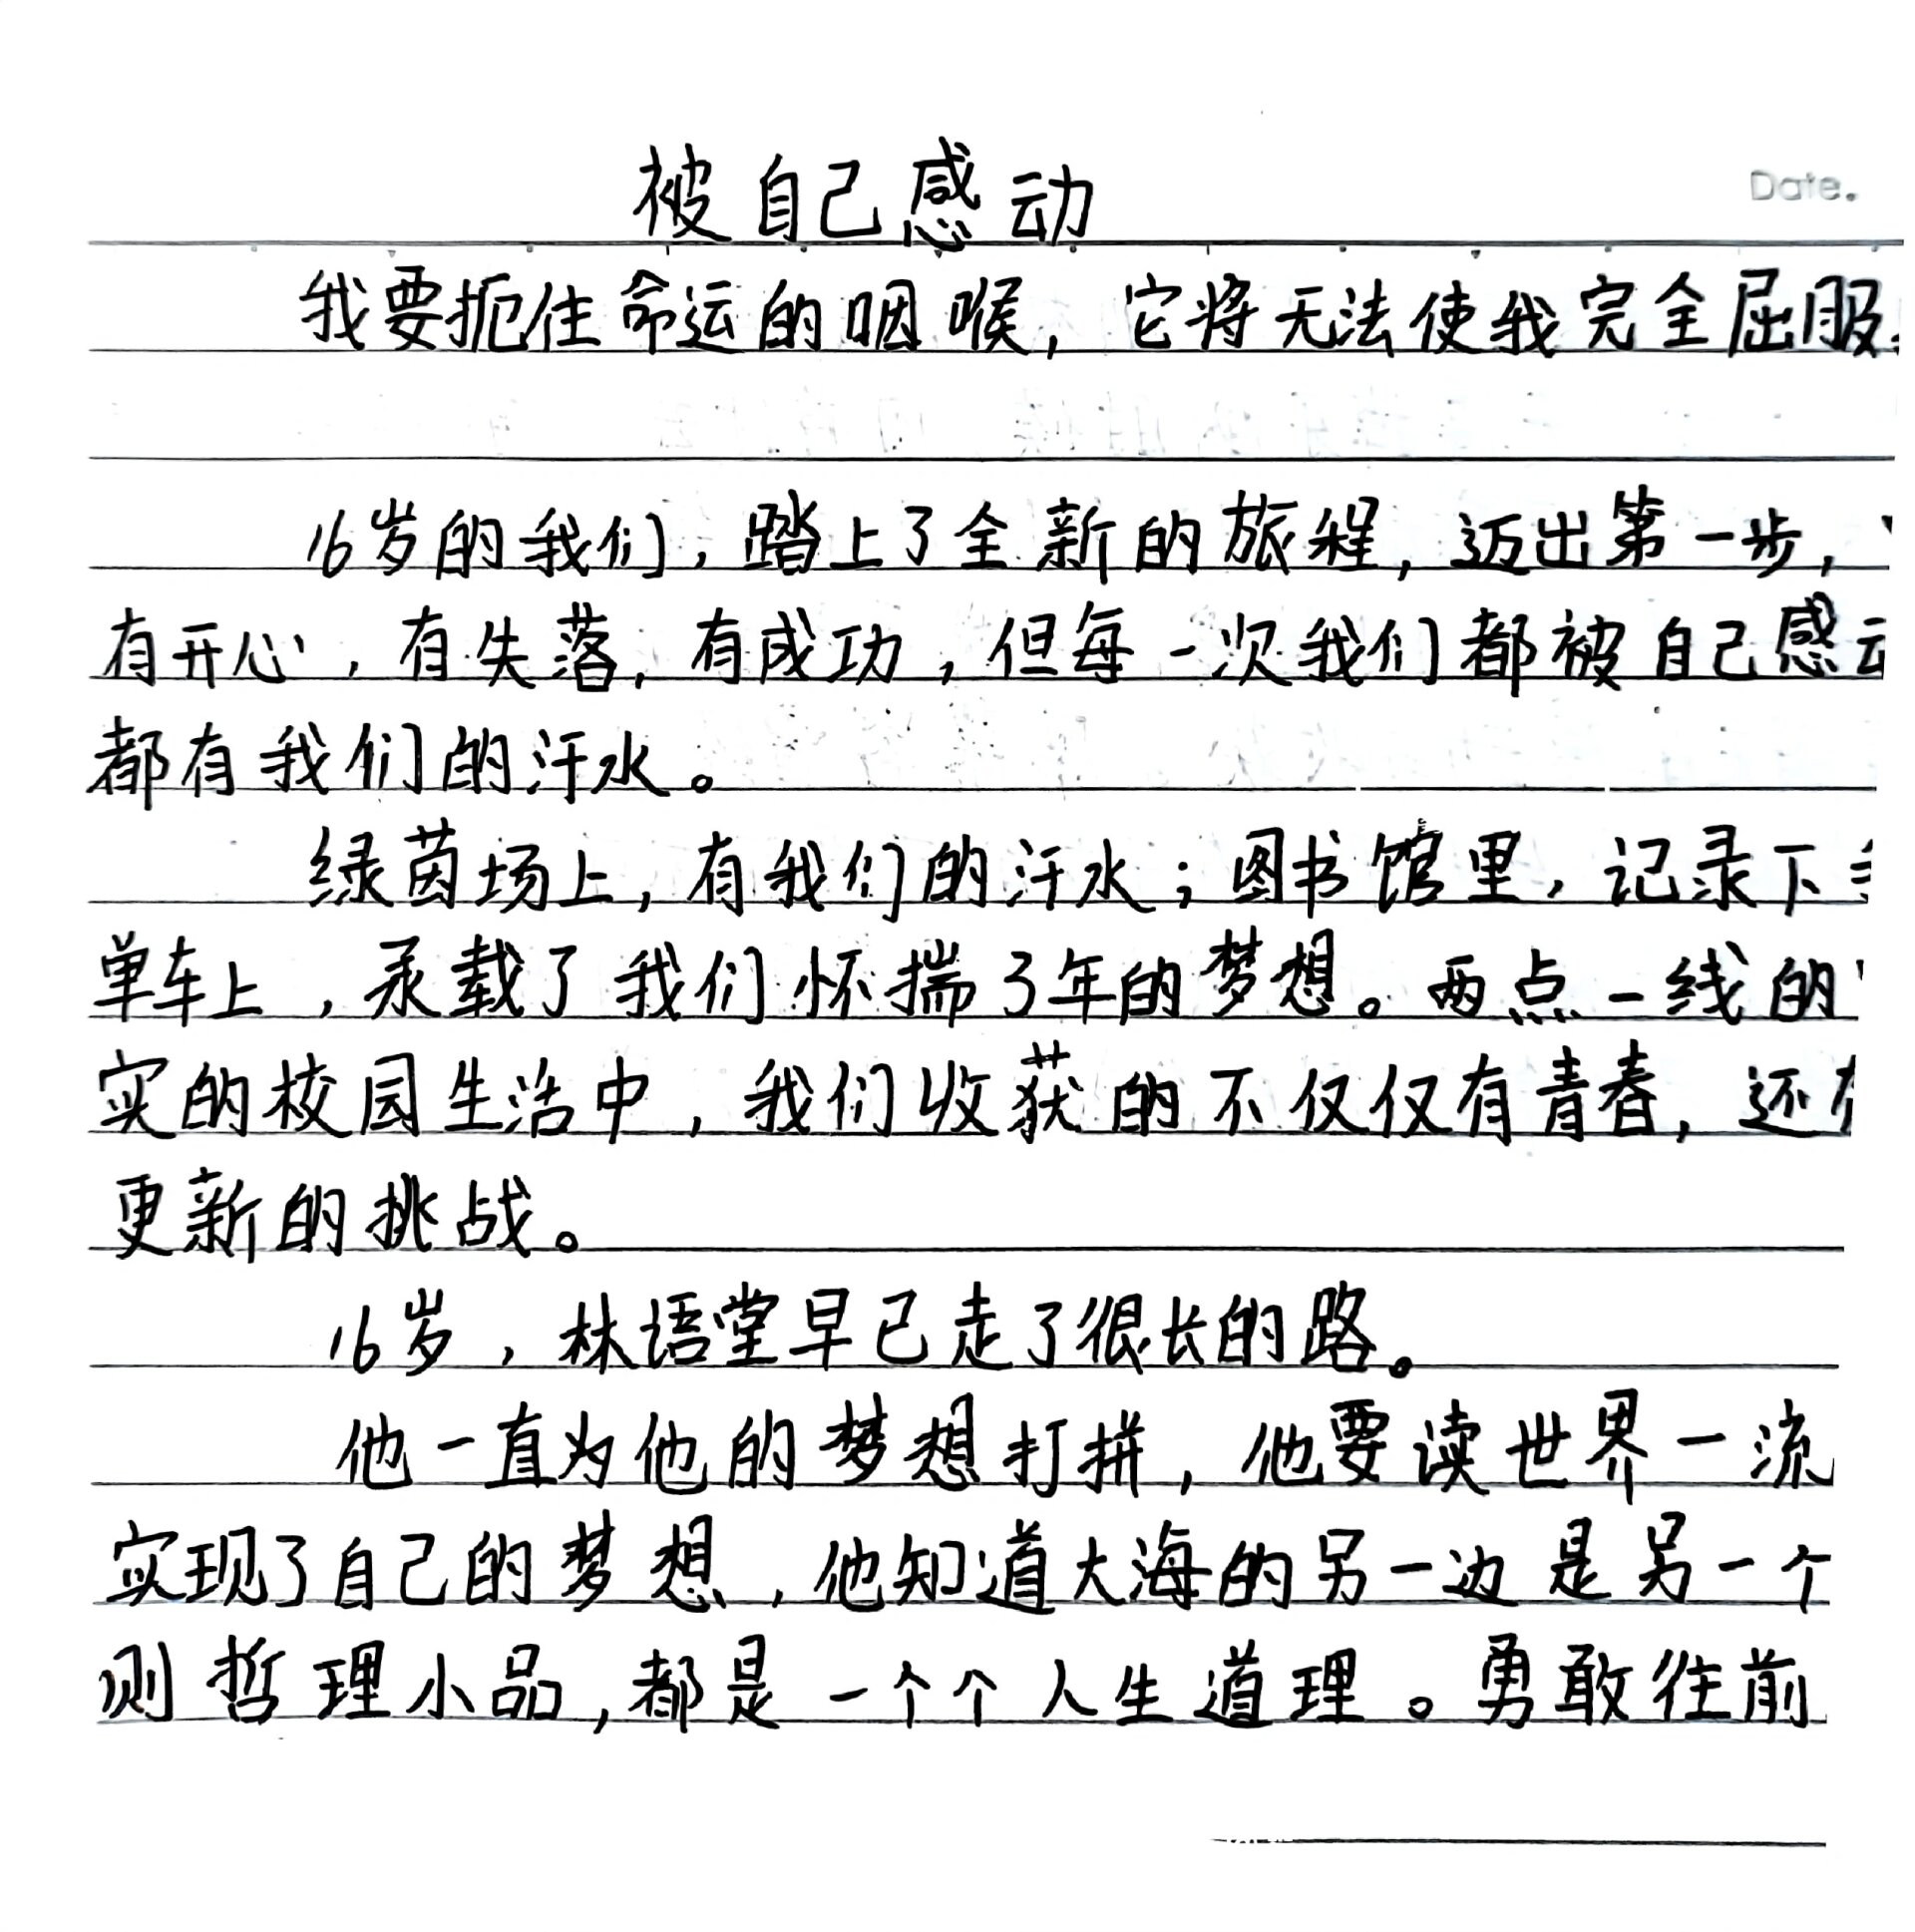 Date.
被自己感动
我要扼住命运的咽喉，它将无法使我完全屈服
16岁的我们，踏上了全新的旅程，迈出第一步，
有开心，有失落，有成功，但每一次我们都被自己感
都有我们的汗水。
绿茵场上，有我们的汗水；图书馆里，记录下
单车上，承载了我们怀揣3年的梦想。两点一线的
实的校园生活中，我们收获的不仅仅有青春，还
更新的挑战。
16岁，林语堂早已走了很长的路。
他一直为他的梦想打拼，他要读世界一流
实现了自己的梦想，他知道大海的另一边是另一个
则哲理小品，都是一个个人生道理。勇敢往前